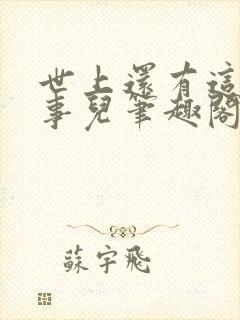 世上還有這
事兒筆趣閣
蘇宇飛